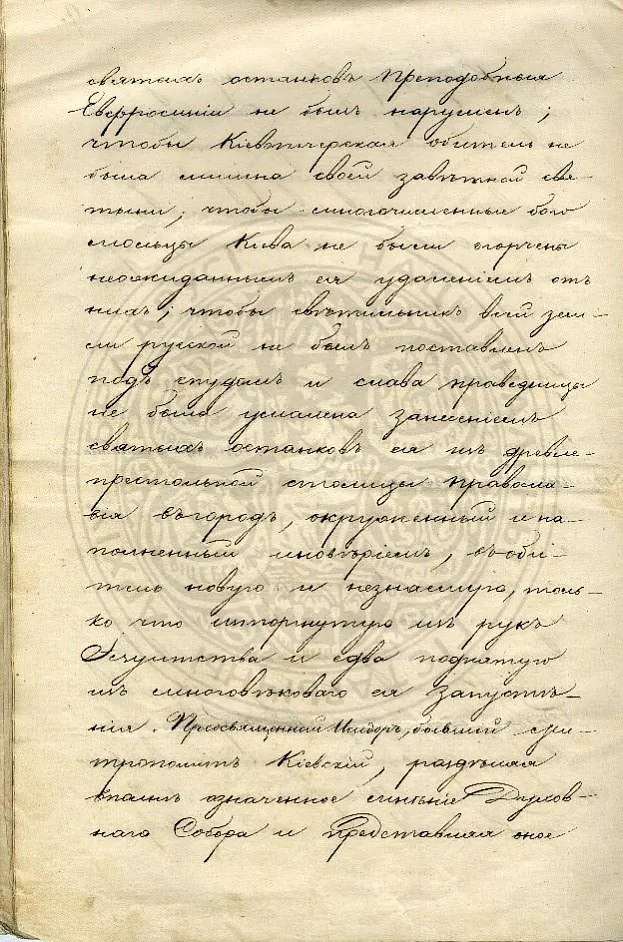 святыхъ останковъ Преподобныя
Евфросиніи не былъ нарушенъ;
чтобы Кіевпечерская обитель не
была лишена своей завѣтной свя-
тыни; чтобы многочисленные бого
мольцы Кіева не были огорчены
неожиданнымъ ея удаленіемъ отъ
нихъ; чтобы свѣтильникъ всей зем-
ли русской не былъ поставленъ
подъ спудомъ и слава праведницы
не была умалена занесеніемъ
святыхъ останковъ ея изъ древле-
престольной столицы правосла-
вія въ городъ, окруженный и на-
полненный иновѣріемъ, въ оби-
тель новую и незнаемую, толь-
ко что исторгнутую изъ рукъ
Іезуитства и едва поднятую
изъ многовѣковаго ея запустѣ-
нія. Преосвященный Исидоръ, бывшій ми-
трополитъ Кіевскій, раздѣляя
вполнѣ означенное мнѣніе Духов-
наго Собора и представляя оное